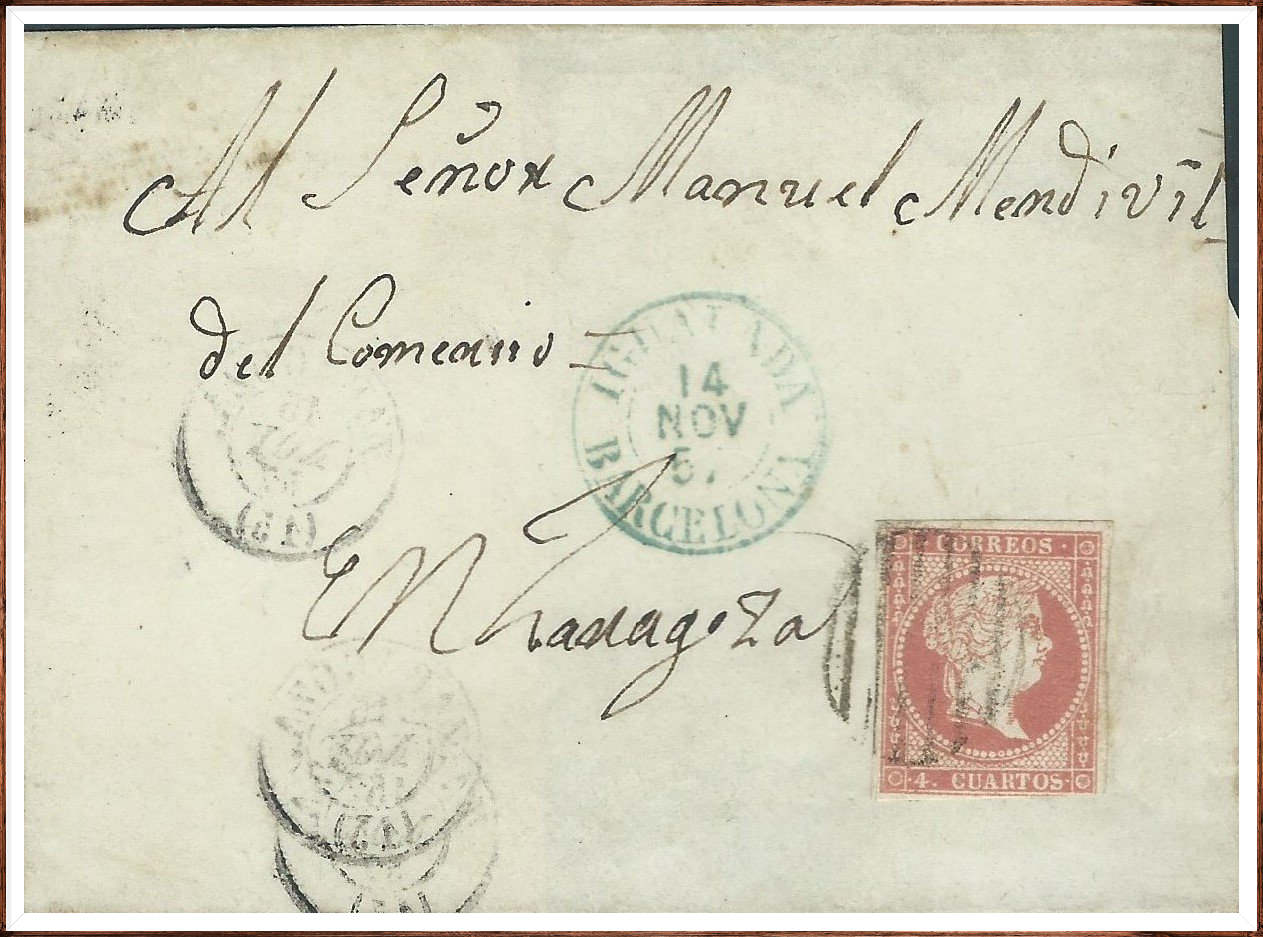 Al Señor Manuel Mendivil
del Comercio =
IGUALADA
14
NOV
57
BARCELONA
En Zaragoza
CORREOS
4. CUARTOS.
(45)
(45)